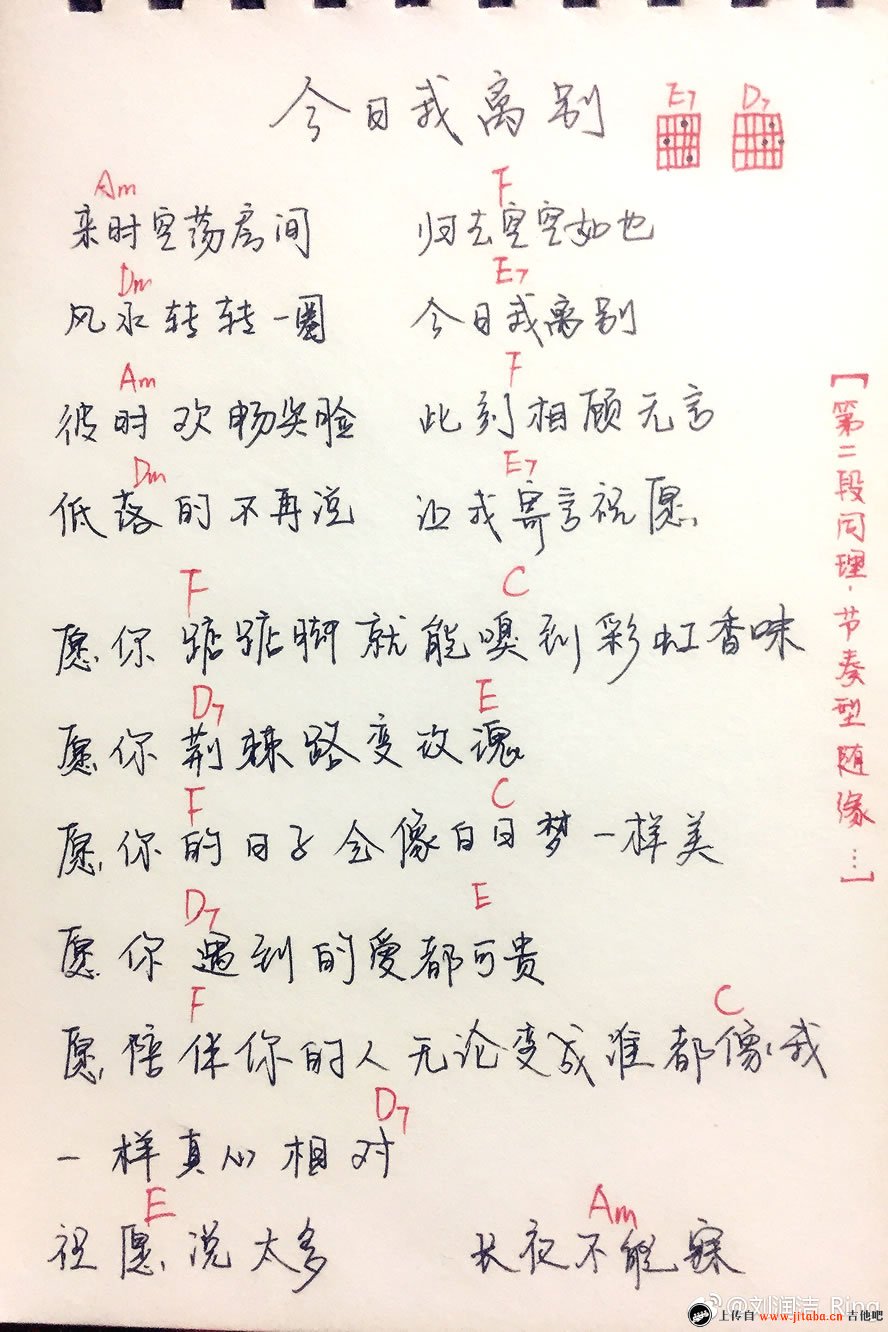 今日我离别 E7 D7
Am F
来时空荡房间 归去空空如也
Dm E7
风水转转一圈 今日我离别
Am F
彼时欢畅笑脸 此刻相顾无言
Dm E7
低落的不再说 让我寄言祝愿
F C
愿你踮踮脚就能嗅到彩虹香味
D7 E
愿你荆棘路变玫瑰
F C
愿你的日子会像白日梦一样美
D7 E
愿你遇到的爱都可贵
F C
愿陪伴你的人无论变成谁都像我
D7
一样真心相对
E Am
祝愿说太多 长夜不能寐
【第二段同理·节奏型随缘…】
@刘润洁_Ring
上传自 www.jitaba.cn 吉他吧